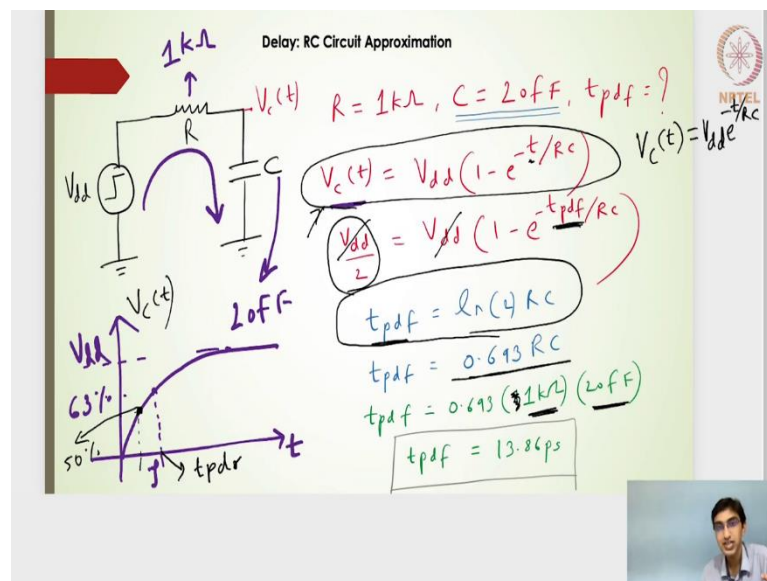 Delay: RC Circuit Approximation
1kΩ
R
Vc(t)
Vdd
C
20fF
R = 1kΩ, C = 20fF, tpdf = ?
NPTEL
Vc(t) = Vdd e^-t/RC
Vc(t) = Vdd (1 - e^-t/RC)
Vdd/2 = Vdd (1 - e^-tpdf/RC)
tpdf = ln(2) RC
tpdf = 0.693 RC
tpdf = 0.693 (1kΩ) (20fF)
tpdf = 13.86ps
Vc(t)
Vdd
63%
50%
tpdr
t